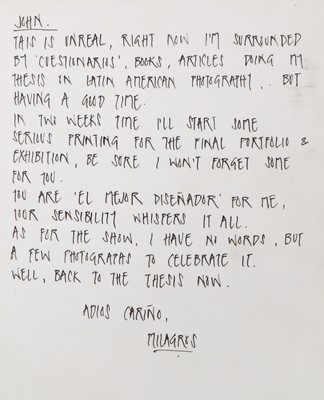 JOHN.
THIS IS UNREAL, RIGHT NOW I'M SURROUNDED
BY 'CUESTIONARIOS', BOOKS, ARTICLES DOING MY
THESIS ON LATIN AMERICAN PHOTOGRAPHY,. BUT
HAVING A GOOD TIME.
IN TWO WEEKS TIME I'LL START SOME
SERIOUS PRINTING FOR THE FINAL PORTFOLIO &
EXHIBITION, BE SURE I WON'T FORGET SOME
FOR YOU.
YOU ARE 'EL MEJOR DISEÑADOR' FOR ME,
YOUR SENSIBILITY WHISPERS IT ALL.
AS FOR THE SHOW, I HAVE NO WORDS, BUT
A FEW PHOTOGRAPHS TO CELEBRATE IT.
WELL, BACK TO THE THESIS NOW.
ADIOS CARIÑO,
MILAGROS